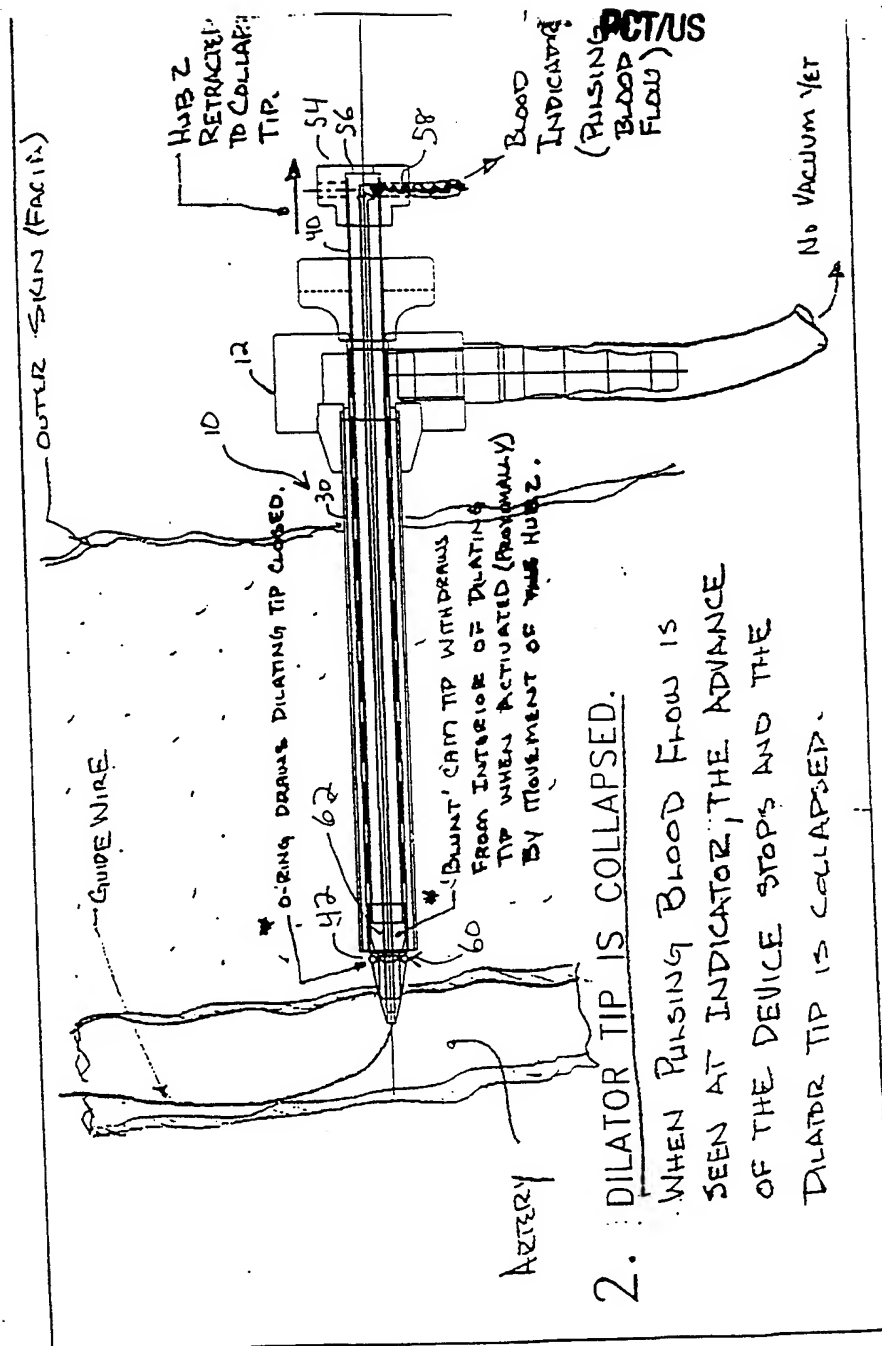 PCT/US
OUTER SKIN (FACIA)
HUB 2
RETRACTED
TO COLLAPSE
TIP.
54
56
58
BLOOD
INDICATOR
(PULSING
BLOOD
FLOW)
40
12
NO VACUUM YET
10
30
* O-RING DRAWS DILATING TIP CLOSED.
GUIDE WIRE
42
62
60
* 'BLUNT' CAM TIP WITHDRAWS
FROM INTERIOR OF DILATING
TIP WHEN ACTIVATED (PROXIMALLY)
BY MOVEMENT OF HUB 2.
ARTERY
2. DILATOR TIP IS COLLAPSED.
WHEN PULSING BLOOD FLOW IS
SEEN AT INDICATOR, THE ADVANCE
OF THE DEVICE STOPS AND THE
DILATOR TIP IS COLLAPSED.